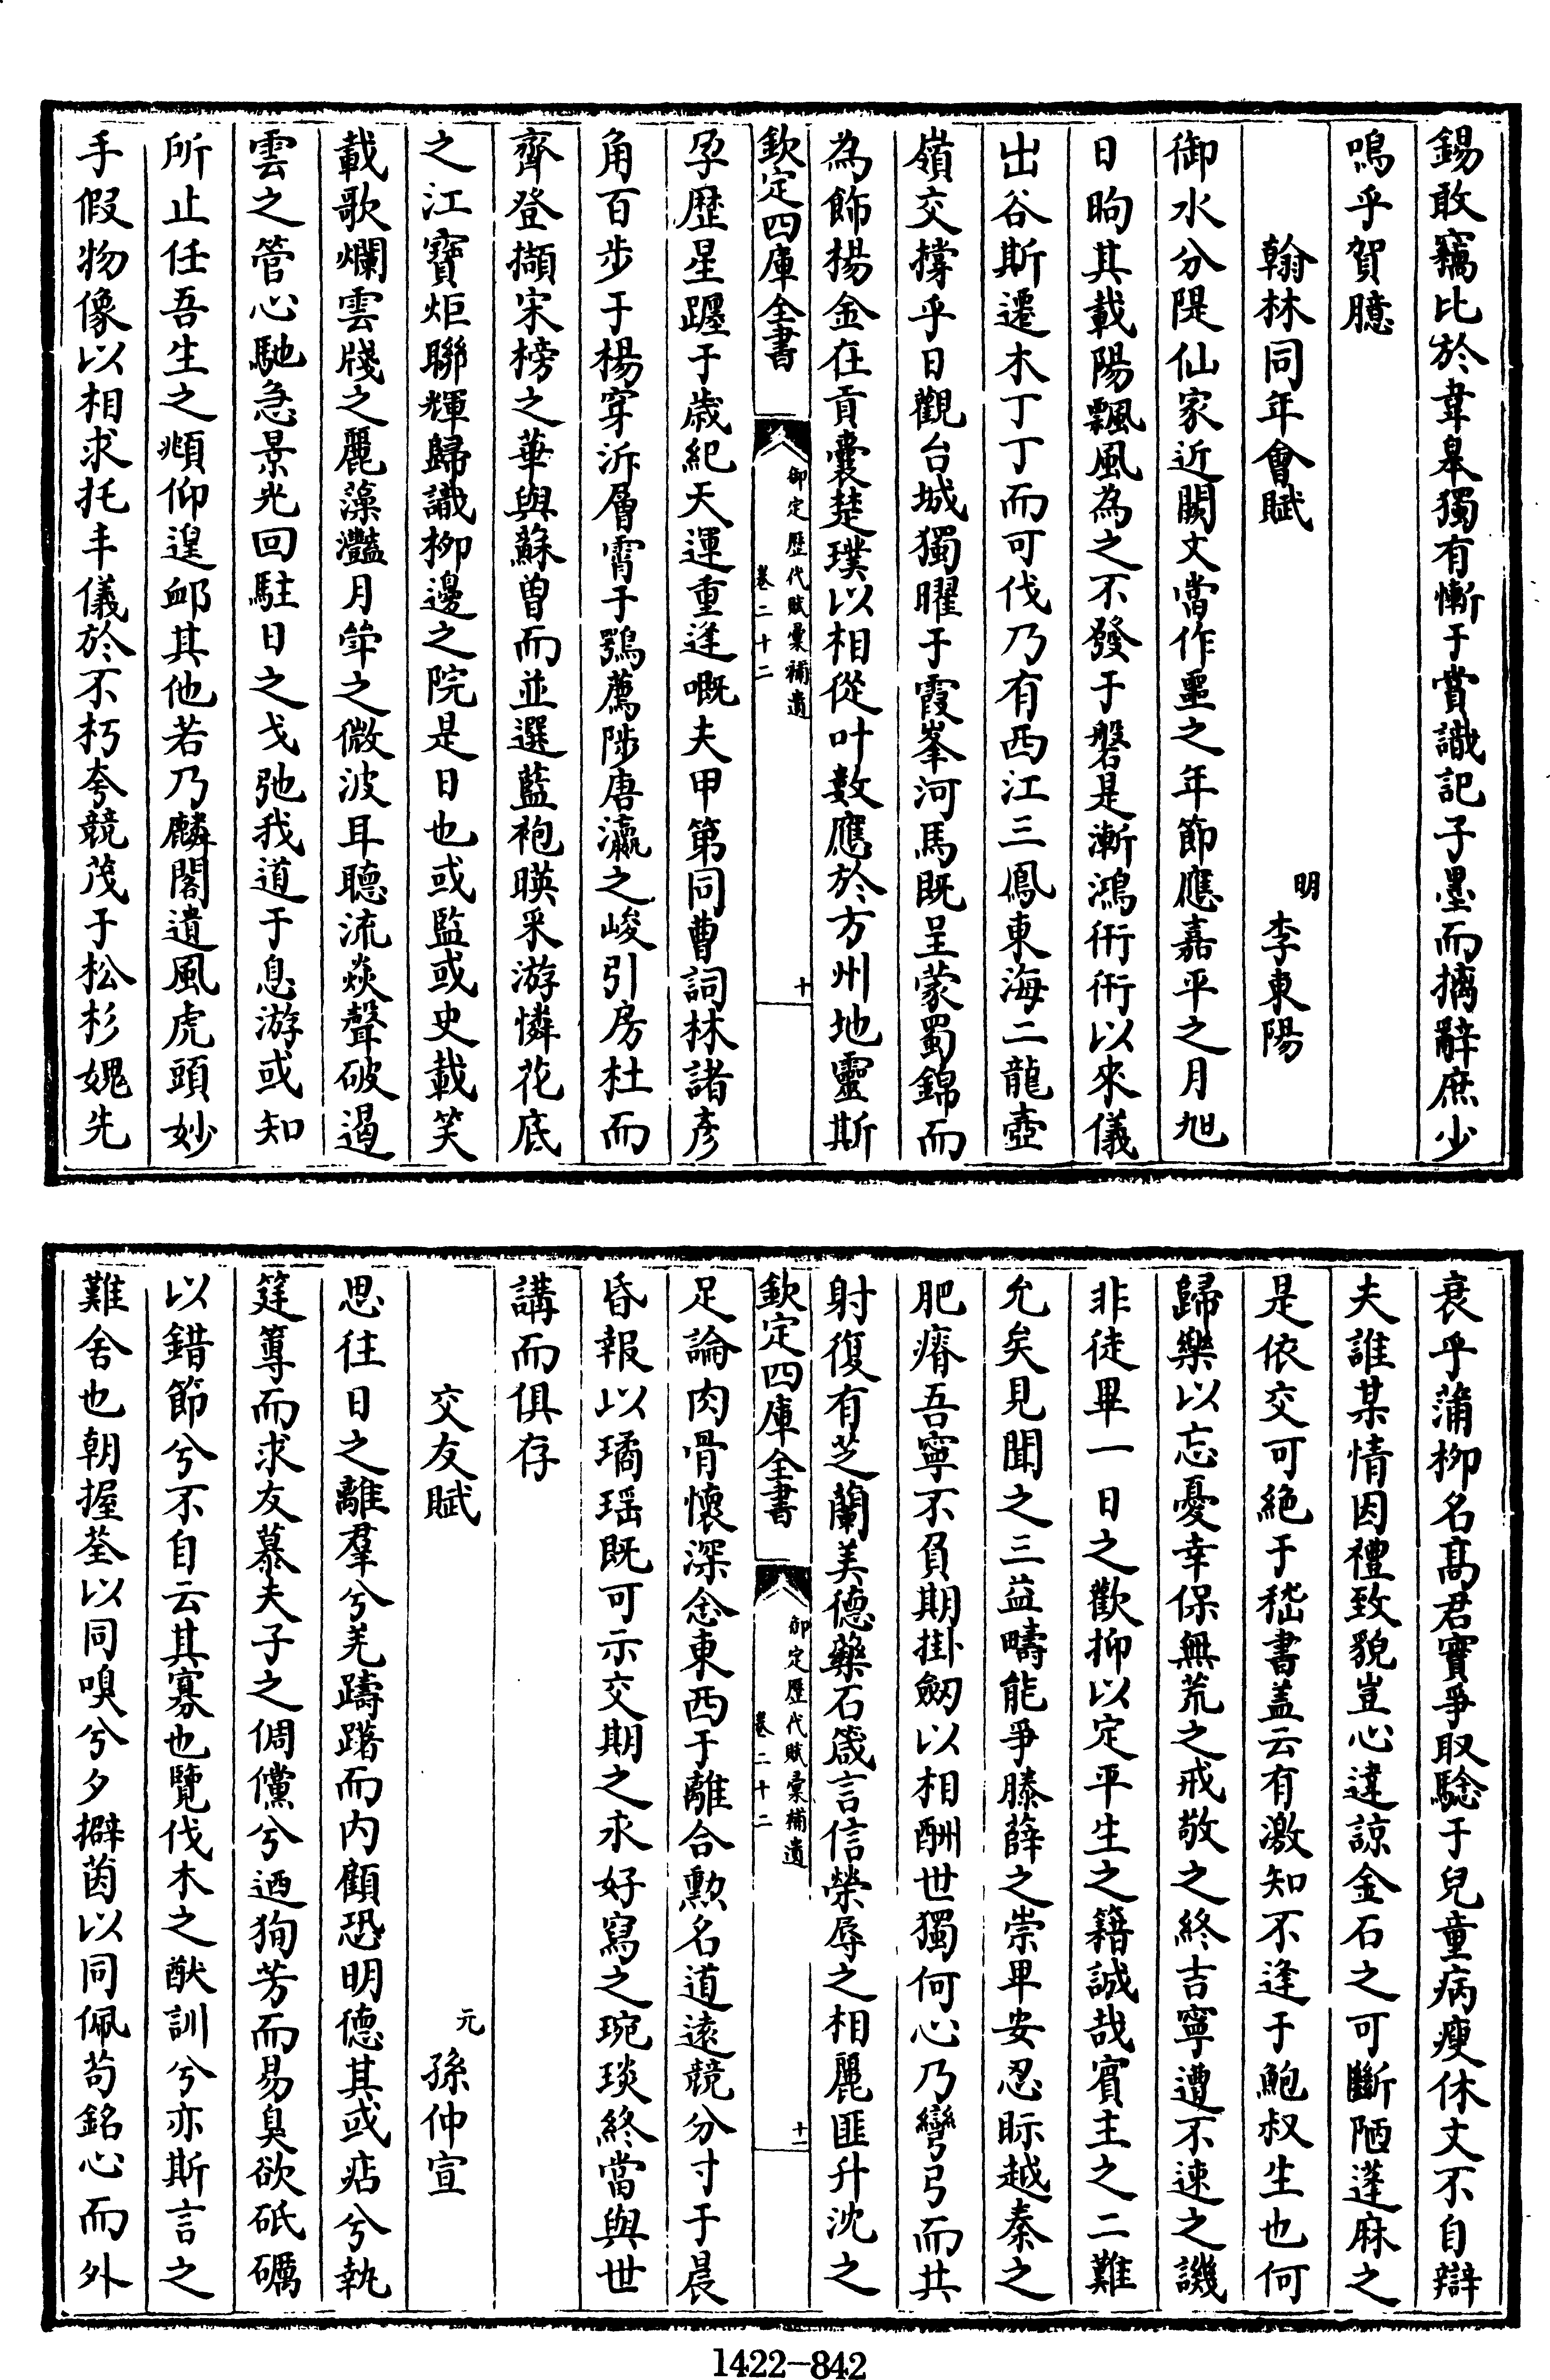 錫敢竊比於韋臯獨有慚于賞識記子墨而摛辭庶少
鳴乎賀臆
翰林同年會賦
明 李東陽
御水分隄仙家近闕文當作噩之年節應嘉平之月旭
日昫其載陽飄風為之不發于磐是漸鴻衎衎以來儀
出谷斯遷木丁丁而可伐乃有西江三鳳東海二龍壺
嶺交撐乎日觀台城獨曜于霞峯河馬既呈蒙蜀錦而
為飾楊金在貢囊楚璞以相從叶數應於方州地靈斯
欽定四庫全書
御定歴代賦彙補遺
卷二十二
十
孕歴星躔于歲紀天運重逢嘅夫甲第同曹詞林諸彥
角百步于楊穿泝層霄于鶚薦陟唐瀛之峻引房杜而
齊登擷宋榜之華與蘇曽而並選藍袍暎釆游憐花底
之江寶炬聯輝歸識柳邊之院是日也或監或史載笑
載歌爛雲牋之麗藻灩月斝之微波耳聽流焱聲破遏
雲之管心馳急景光回駐日之戈弛我道于息游或知
所止任吾生之頫仰遑邮其他若乃麟閣遺風虎頭妙
手假物像以相求托丰儀於不朽夸競茂于松杉媿先
衰乎蒲柳名髙君實爭取騐于兒童病瘦休文不自辯
夫誰某情因禮致貌豈心違諒金石之可斷陋蓬麻之
是依交可絶于嵇書盖云有激知不逢于鮑叔生也何
歸樂以忘憂幸保無荒之戒敬之終吉寧遭不速之譏
非徒畢一日之歡抑以定平生之籍誠哉賓主之二難
允矣見聞之三益疇能爭滕薛之崇卑安忍眎越秦之
肥瘠吾寧不負期掛劒以相酬世獨何心乃彎弓而共
射復有芝蘭美德藥石箴言信榮辱之相麗匪升沈之
欽定四庫全書
御定歴代賦彙補遺
卷二十二
十一
足論肉骨懷深念東西于離合勲名道遠競分寸于晨
昏報以璚瑶既可示交期之永好寫之琬琰終當與世
講而俱存
交友賦
元 孫仲宣
思往日之離羣兮羌躊躇而内顧恐明德其或痁兮執
筳篿而求友慕夫子之倜儻兮迺狥芳而易臭欲砥礪
以錯節兮不自云其寡也覽伐木之猷訓兮亦斯言之
難舍也朝握荃以同嗅兮夕擗茵以同佩苟銘心而外
1422—842